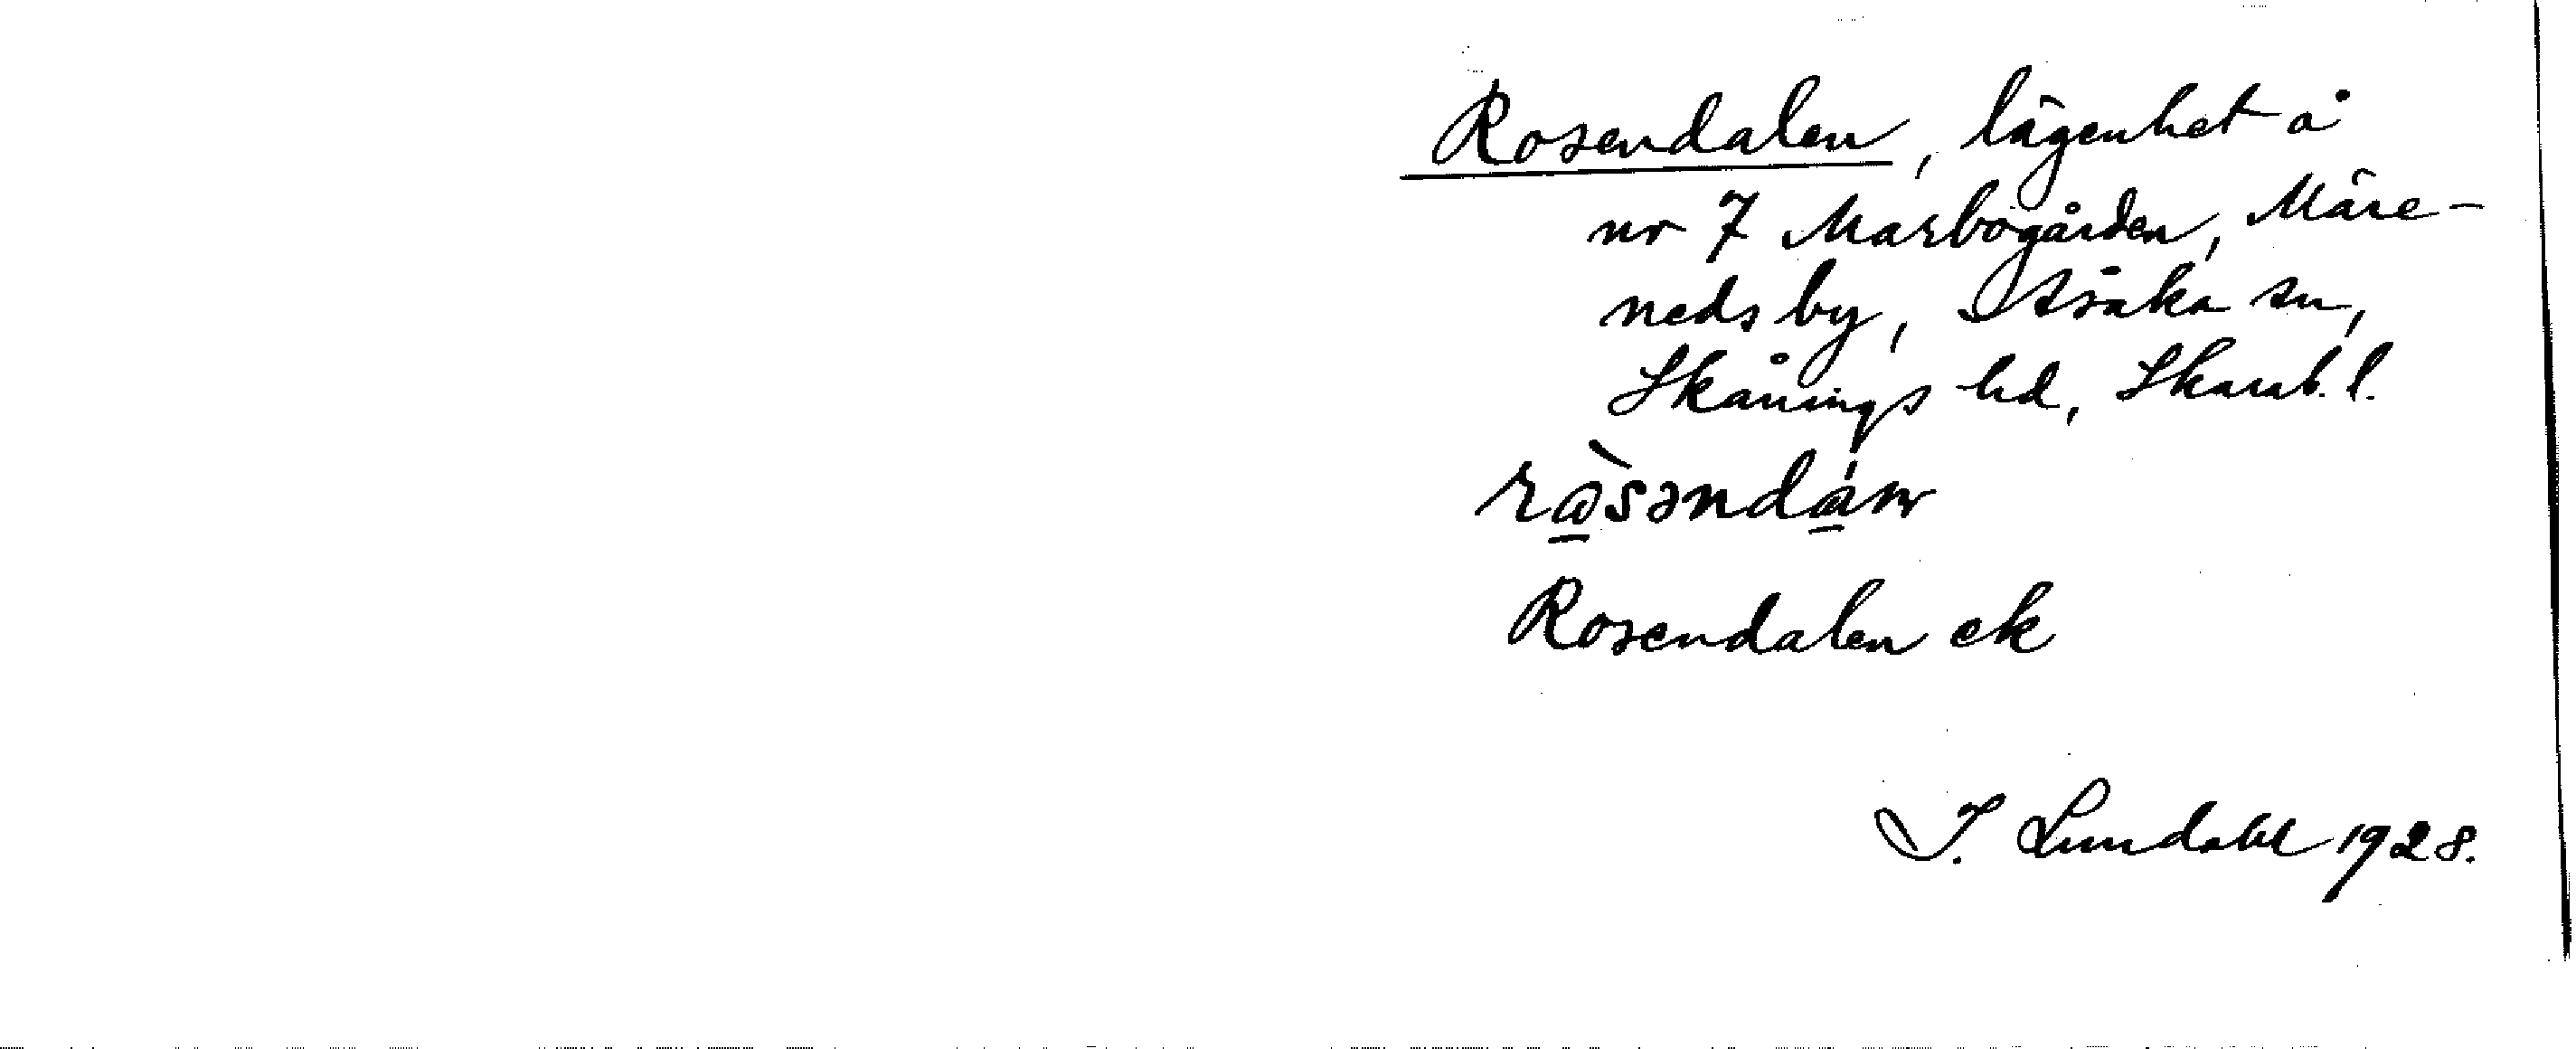 Rosendalen, lägenhet å
nr 7 Marbogården, Märe-
neds by, Åsaka sn,
Skånings hd, Skarab. l.
Rosendalen ek
I. Lundahl 1928.